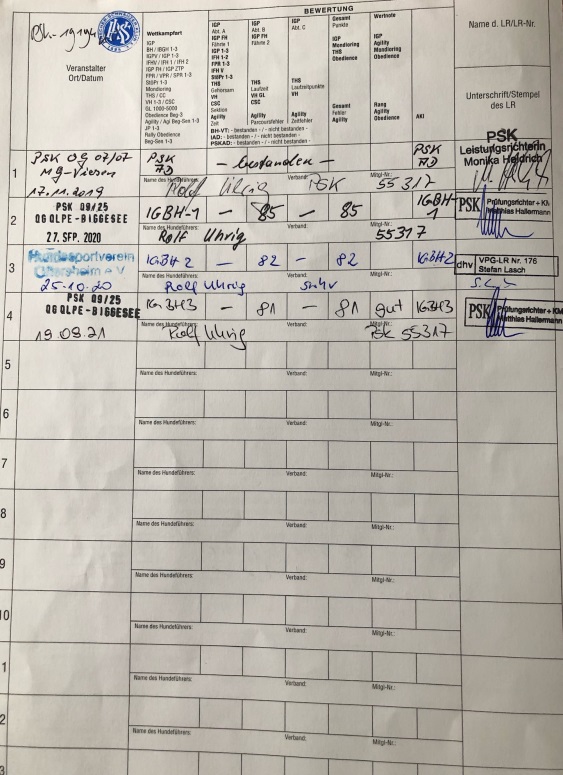 BEWERTUNG
Veranstalter
Ort/Datum
Wettkampfart
IGP
BH / IBGH 1-3
IGPV / IGP 1-3
IFHV / IFH 1 / IFH 2
IGP FH / IGP ZTP
FPR / VPR / SPR 1-3
StöPr 1-3
Mondioring
THS / CC
VH 1-3 / CSC
GL 1000-5000
Obedience Beg-3
Agility / Agi Beg-Sen 1-3
JP 1-3
Rally Obedience
Beg-Sen 1-3
IGP
Abt. A
IGP FH
Fährte 1
IGP 1-3
IFH 1-2
FPR 1-3
IFHV
StöPr 1-3
THS
Gehorsam
VH
CSC
Sektion
Agility
Zeit
IGP
Abt. B
IGP FH
Fährte 2
THS
Laufzeit
VH GL
CSC
Obedience
Agility
Parcoursfehler
IGP
Abt. C
THS
Laufzeitpunkte
VH
Agility
Zeitfehler
BH-VT: - bestanden - / - nicht bestanden -
IAD: - bestanden - / - nicht bestanden -
PSKAD: - bestanden - / - nicht bestanden -
Gesamt
Punkte
IGP
Mondioring
THS
Obedience
Gesamt
Fehler
Agility
Wertnote
IGP
Agility
Mondioring
Obedience
Rang
Agility
Obedience
AKl
Name d. LR/LR-Nr.
Unterschrift/Stempel
des LR
1
PSK OG 07/07
MG-Viersen
17.11.2019
PSK
AD
- bestanden -
PSK
AD
Name des Hundeführers:
Rolf Uhrig
Verband:
PSK
55317
PSK
Leistungsrichterin
Monika Heidrich
2
PSK 09/25
OG OLPE-BIGGESEE
27. SEP. 2020
IGBH-1 - 85 - 85 IGBH-1
Name des Hundeführers:
Rolf Uhrig
Verband:
Mitgl-Nr.:
55317
PSK
Prüfungsrichter + KM
Matthias Hallermann
3
Hundesportverein
Oftersheim e.V.
25-10-20
IGBH 2 - 82 - 82 IGBH 2
Name des Hundeführers:
Rolf Uhrig
Verband:
Mitgl-Nr.:
dhv
VPG-LR Nr. 176
Stefan Laach
4
PSK 09/25
OG OLPE-BIGGESEE
19.09.21
IGBH3 - 81 - 81 gut IGBH3
Name des Hundeführers:
Rolf Uhrig
Verband:
Mitgl-Nr.:
PSK 55317
PSK
Prüfungsrichter + KM
Matthias Hallermann
5
Name des Hundeführers: Verband: Mitgl-Nr.:
6
Name des Hundeführers: Verband: Mitgl-Nr.:
7
Name des Hundeführers: Verband: Mitgl-Nr.:
8
Name des Hundeführers: Verband: Mitgl-Nr.:
9
Name des Hundeführers: Verband: Mitgl-Nr.:
10
Name des Hundeführers: Verband: Mitgl-Nr.:
1
Name des Hundeführers: Verband: Mitgl-Nr.:
2
Name des Hundeführers: Verband: Mitgl-Nr.:
3